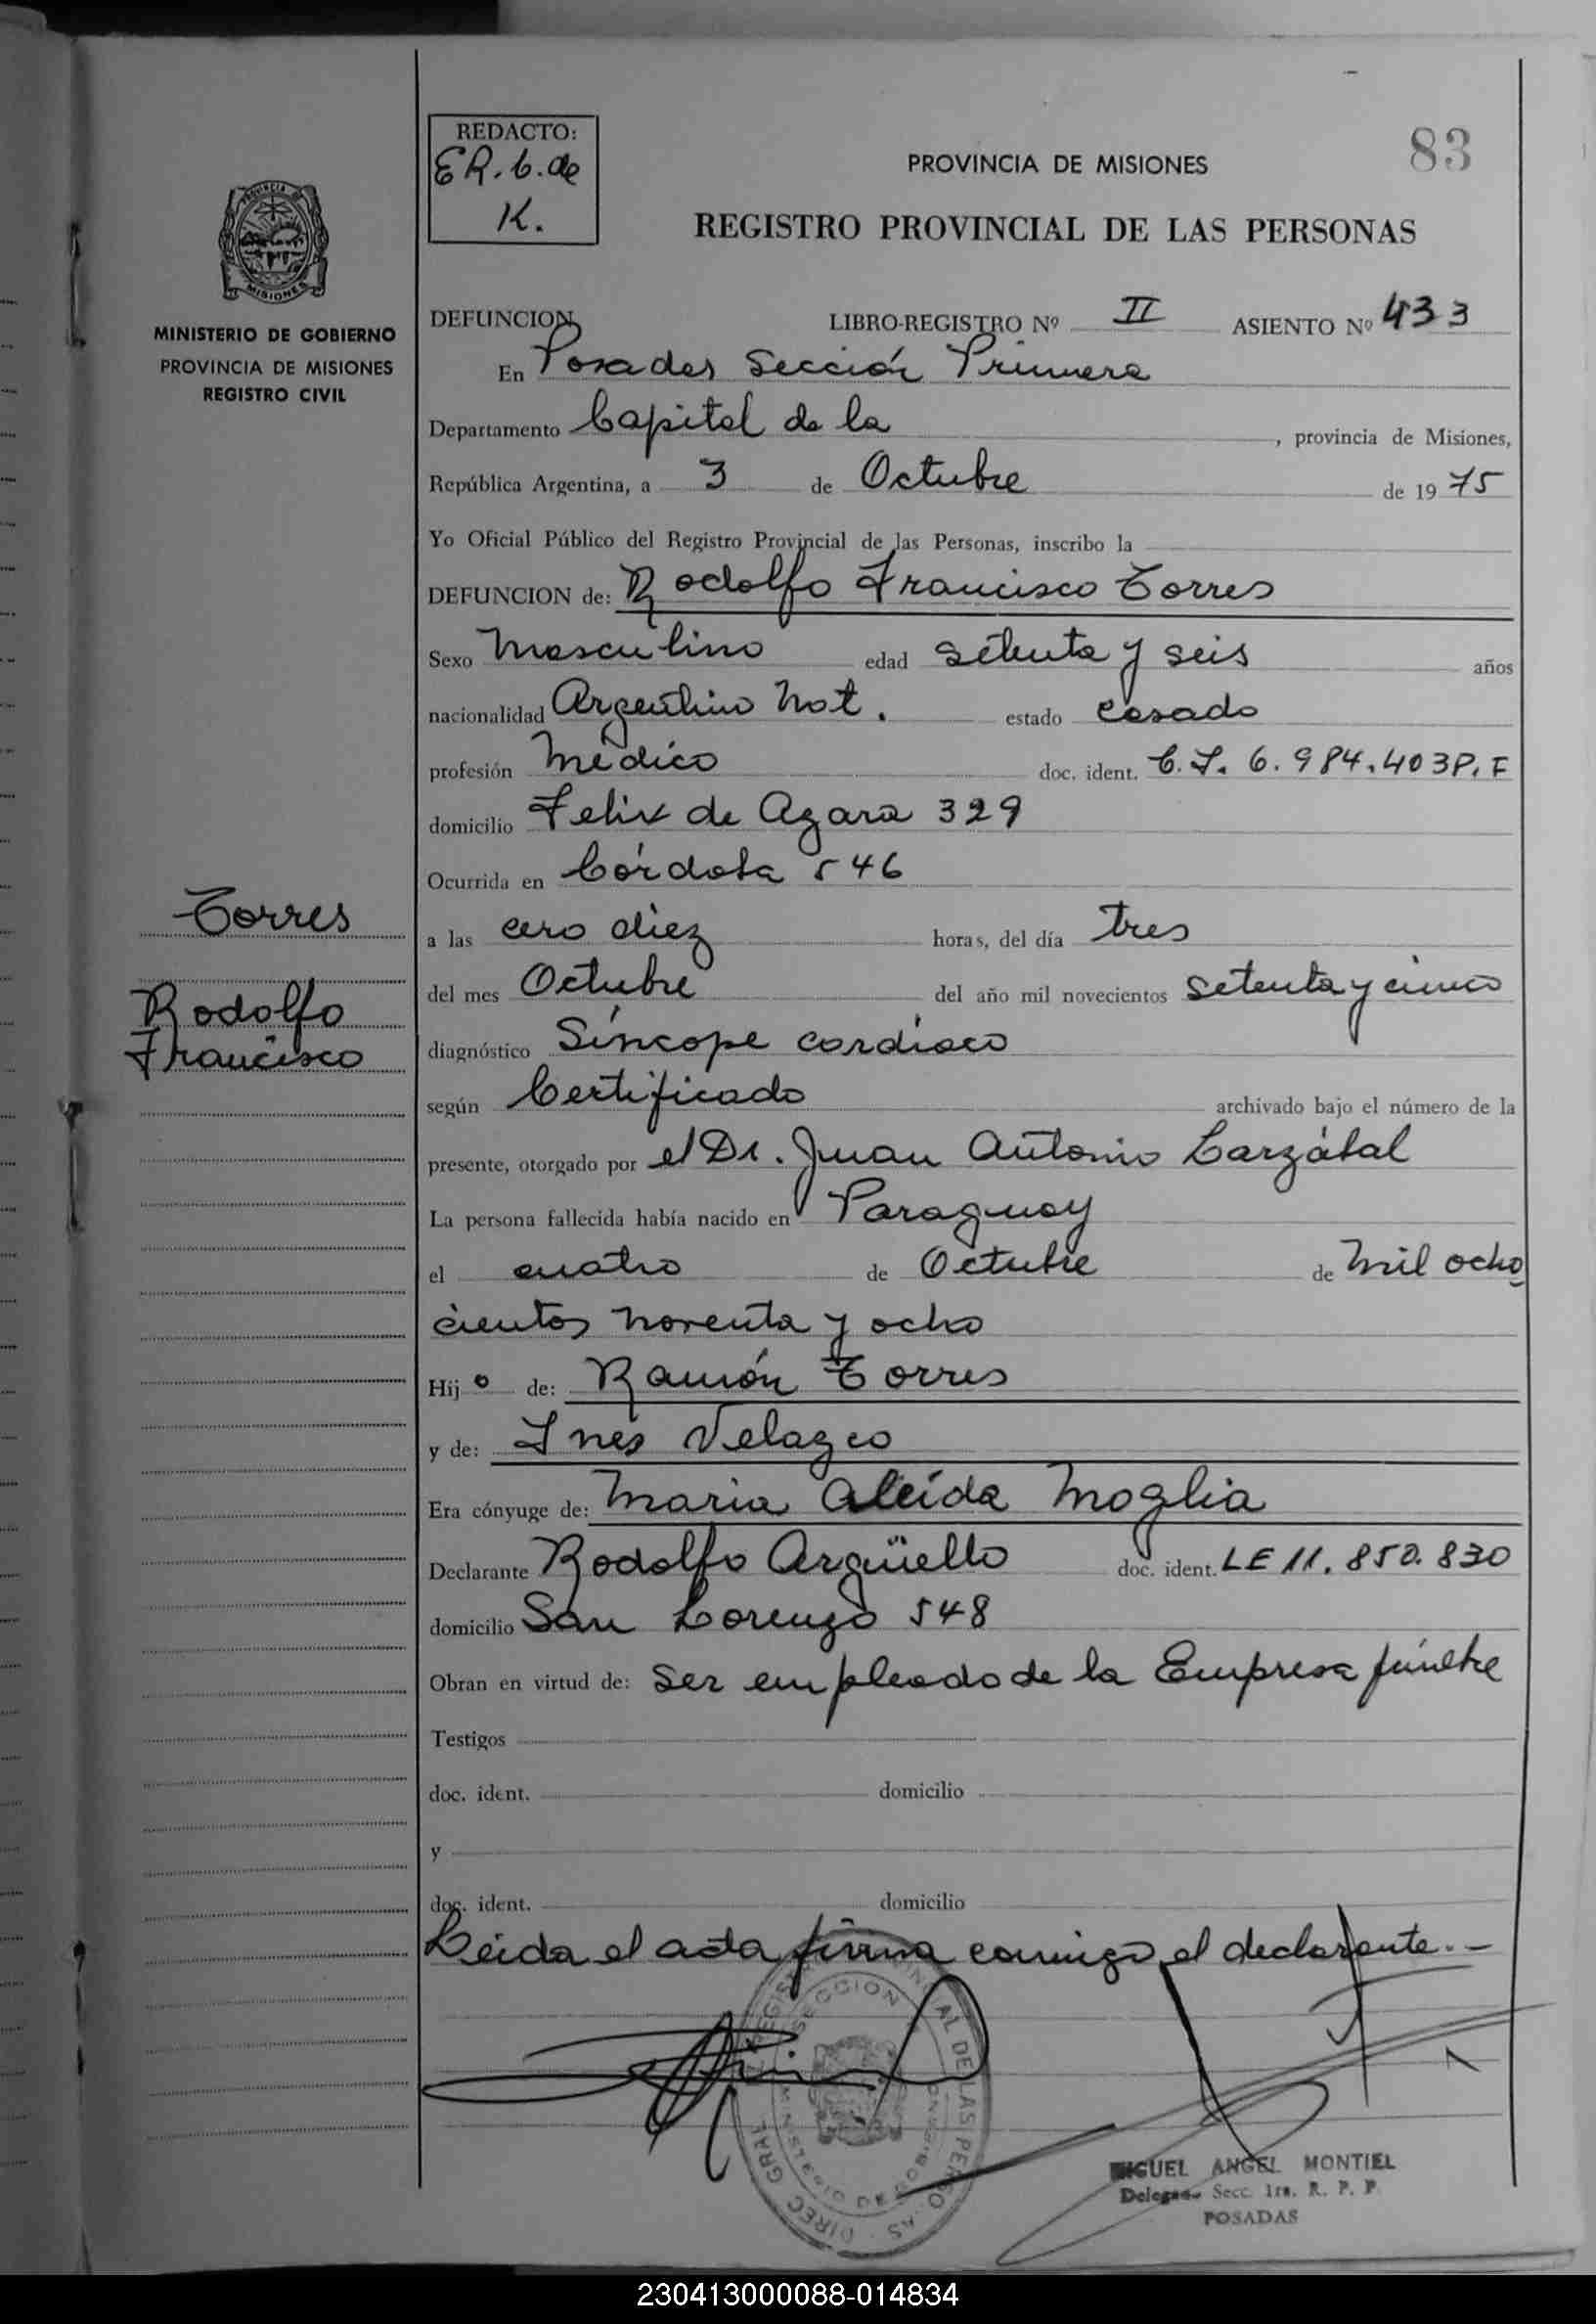 83
REDACTO:
E R. b. de
K.
PROVINCIA DE MISIONES
REGISTRO PROVINCIAL DE LAS PERSONAS
MINISTERIO DE GOBIERNO
PROVINCIA DE MISIONES
REGISTRO CIVIL
DEFUNCION LIBRO-REGISTRO Nº II ASIENTO Nº 433
En Posadas Sección Primera
Departamento Capital de la , provincia de Misiones,
República Argentina, a 3 de Octubre de 1975
Yo Oficial Público del Registro Provincial de las Personas, inscribo la
DEFUNCION de: Rodolfo Francisco Torres
Sexo Masculino edad setenta y seis años
nacionalidad Argentino Nat. estado casado
profesión Médico doc. ident. C.I. 6.984.403 P.F
domicilio Felix de Azara 329
Ocurrida en Córdoba 546
a las cero diez horas, del día tres
del mes Octubre del año mil novecientos setenta y cinco
diagnóstico Síncope cardíaco
según Certificado archivado bajo el número de la
presente, otorgado por el Dr. Juan Antonio Larzábal
La persona fallecida había nacido en Paraguay
el cuatro de Octubre de Mil ocho
cientos noventa y ocho
Hijo de: Ramón Torres
y de: Inés Velazco
Era cónyuge de: Maria Aleida Moglia
Declarante Rodolfo Argüello doc. ident. LE 11.850.830
domicilio San Lorenzo 548
Obran en virtud de: ser empleado de la Empresa fúnebre
Testigos
doc. ident. domicilio
y
doc. ident. domicilio
Leida el acta firma conmigo el declarante.-
Torres
Rodolfo
Francisco
MIGUEL ANGEL MONTIEL
Delegado Secc. 1ra. R. P. P
POSADAS
230413000088-014834